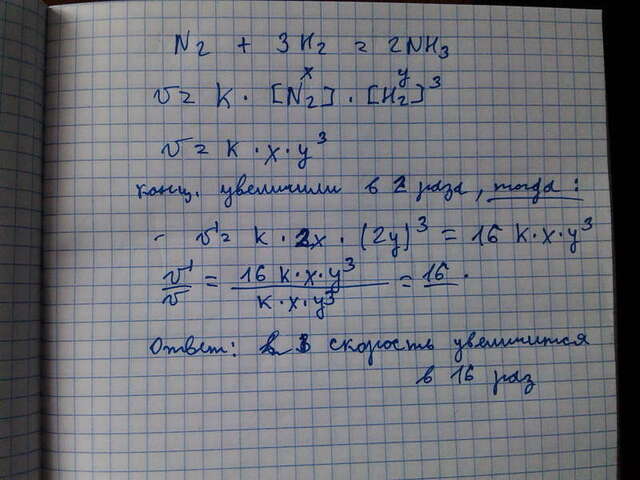 N2 + 3H2 = 2NH3
x y
v = k · [N2] · [H2]³
v = k · x · y³
конц. увеличили в 2 раза, тогда:
- v' = k · 2x · (2y)³ = 16 k·x·y³
v'/v = 16 k·x·y³ / k·x·y³ = 16.
Ответ: скорость увеличится
в 16 раз